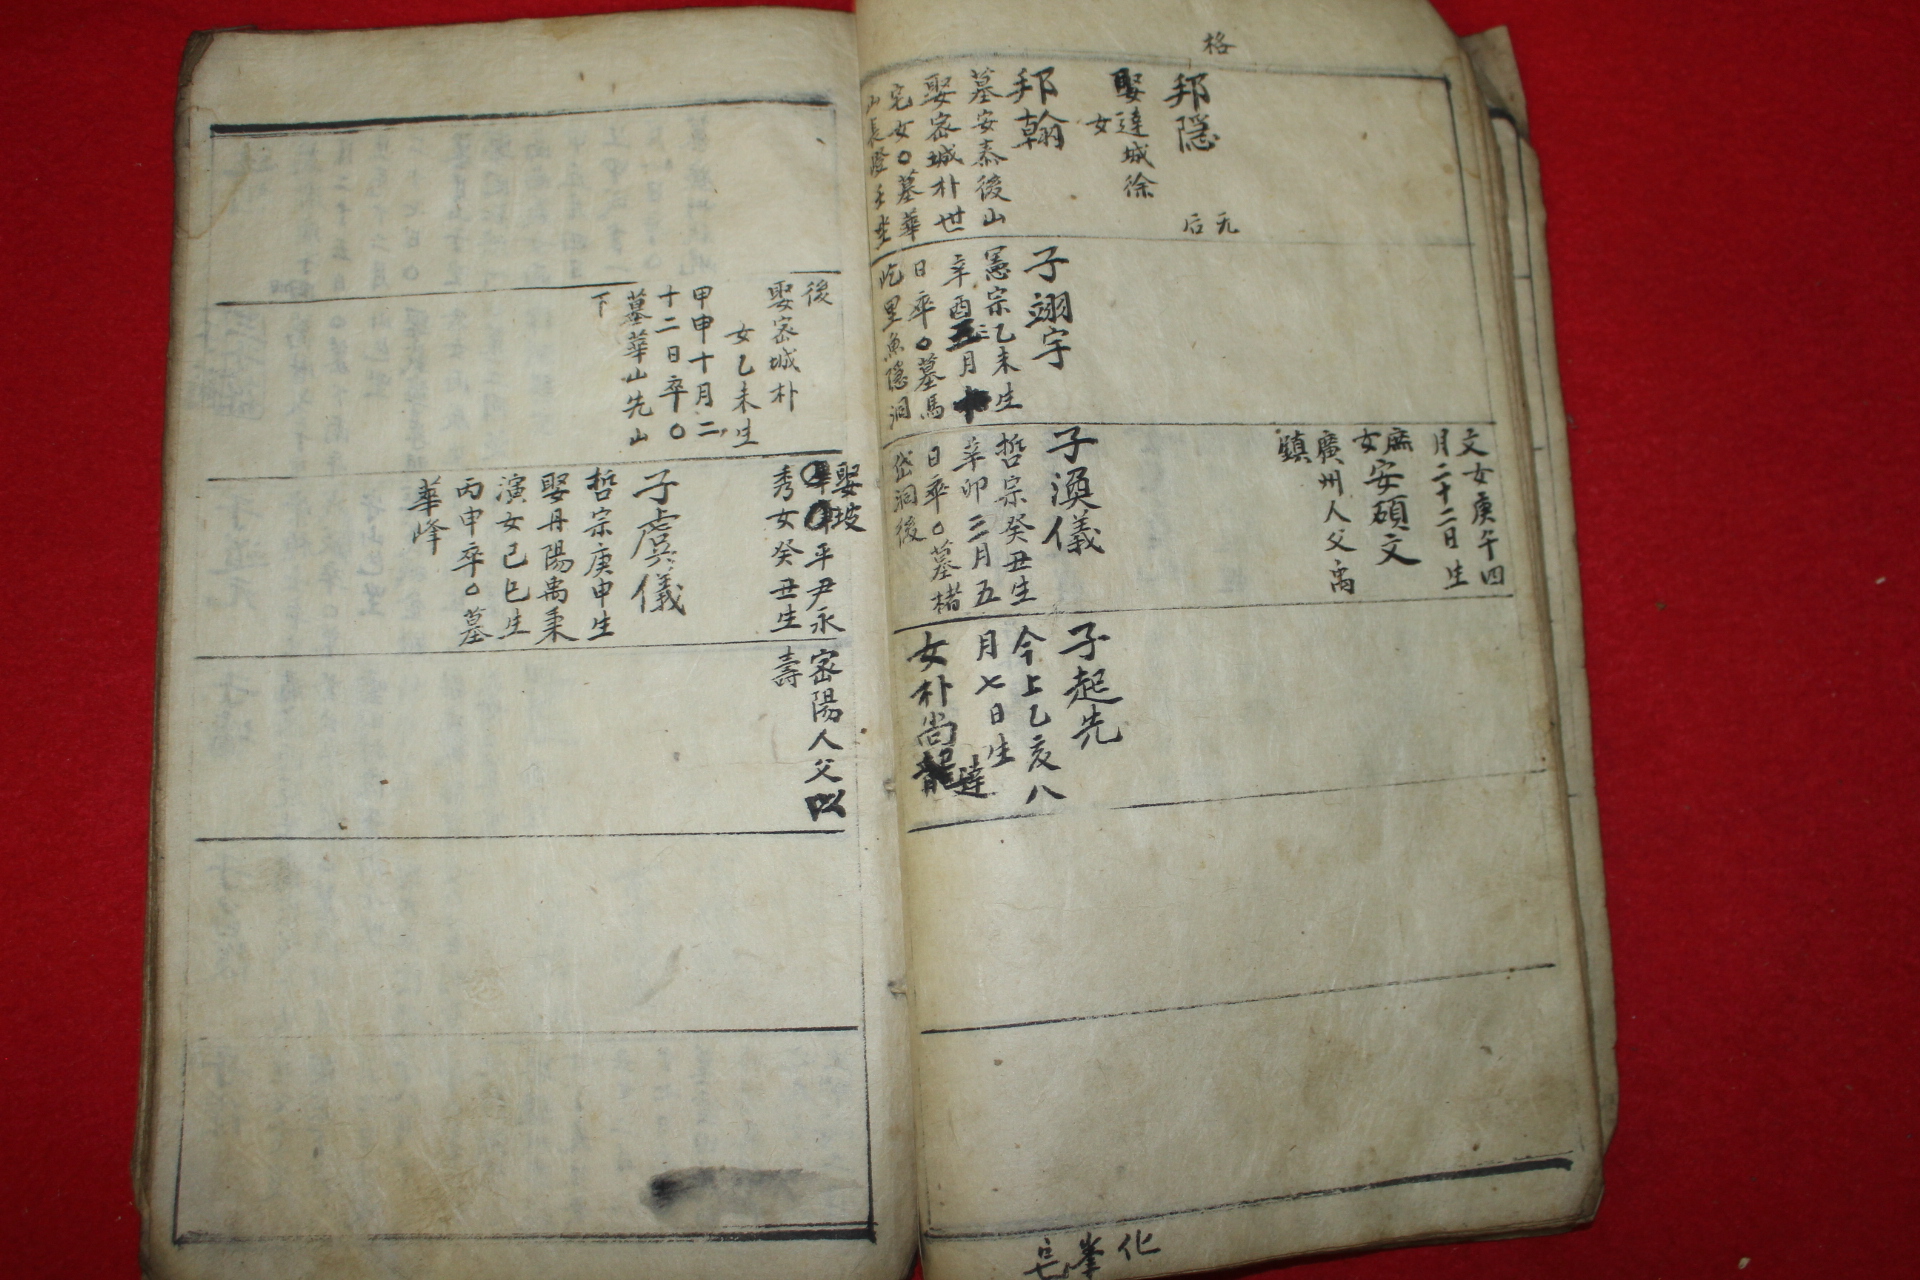 格
邦隱
娶達城徐
女
无
后
邦翰
墓安泰後山
娶密城朴世
宅女○墓華
山長隆壬坐
子翊宇
憲宗乙未生
辛酉三月
日卒○墓馬
屹里魚隱洞
後
娶密城朴
女乙未生
甲申十月二
十二日卒○
墓華山先山
下
文女庚午四
月二十二日生
庶女安碩文
廣州人父禹
鎮
子渙儀
哲宗癸丑生
辛卯三月五
日卒○墓楮
岱洞後
娶坡
平尹永
秀女癸丑生
子虞儀
哲宗庚申生
娶丹陽禹秉
演女己巳生
丙申卒○墓
華峰
子起先
今上乙亥八
月七日生
女朴尚達
密陽人父以
壽
化
峯